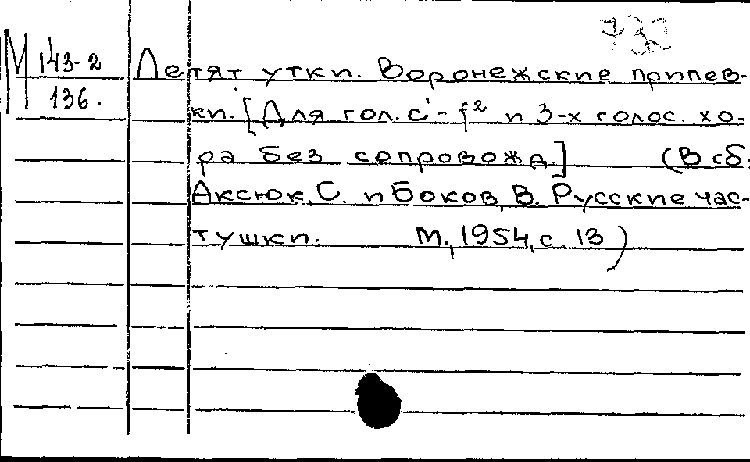 М 143-2 Летят утки. Воронежские припев-
136. ки. [Для гол. c¹-f² и 3-х голос. хо-
ра без сопровожд.] (В сб:
Аксюк, С. и Боков, В. Русские час-
тушки. М., 1954, с. 13)